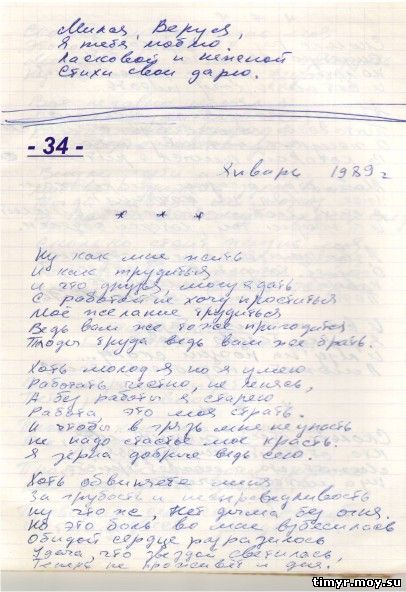 Милая, Веруся,
Я тебя люблю.
Ласковой и нежной
Стихи свои дарю.
- 34 -
Январь 1989 г
* * *
Ну как мне жить
И как трудиться
И что друзья, могу я дать
С работой не хочу проститься
Моё желание трудиться
Ведь вам же тоже пригодится
Плоды труда ведь вам же брать.
Хоть молод я но я умею
Работать честно, не ленясь,
А без работы я старею
Работа, это моя страть.
И чтобы в грязь мне не упасть
Не надо счастье мое красть.
Я зёрна доброе ведь сею.
Хоть обвиняете меня
За грубость и
ну что же, нет дыма без огня.
Но это боль во мне взбесилась
Обидой сердце разразилось
Удача, что звездой светилась,
Теперь не проживёт и дня.
timyr.moy.su